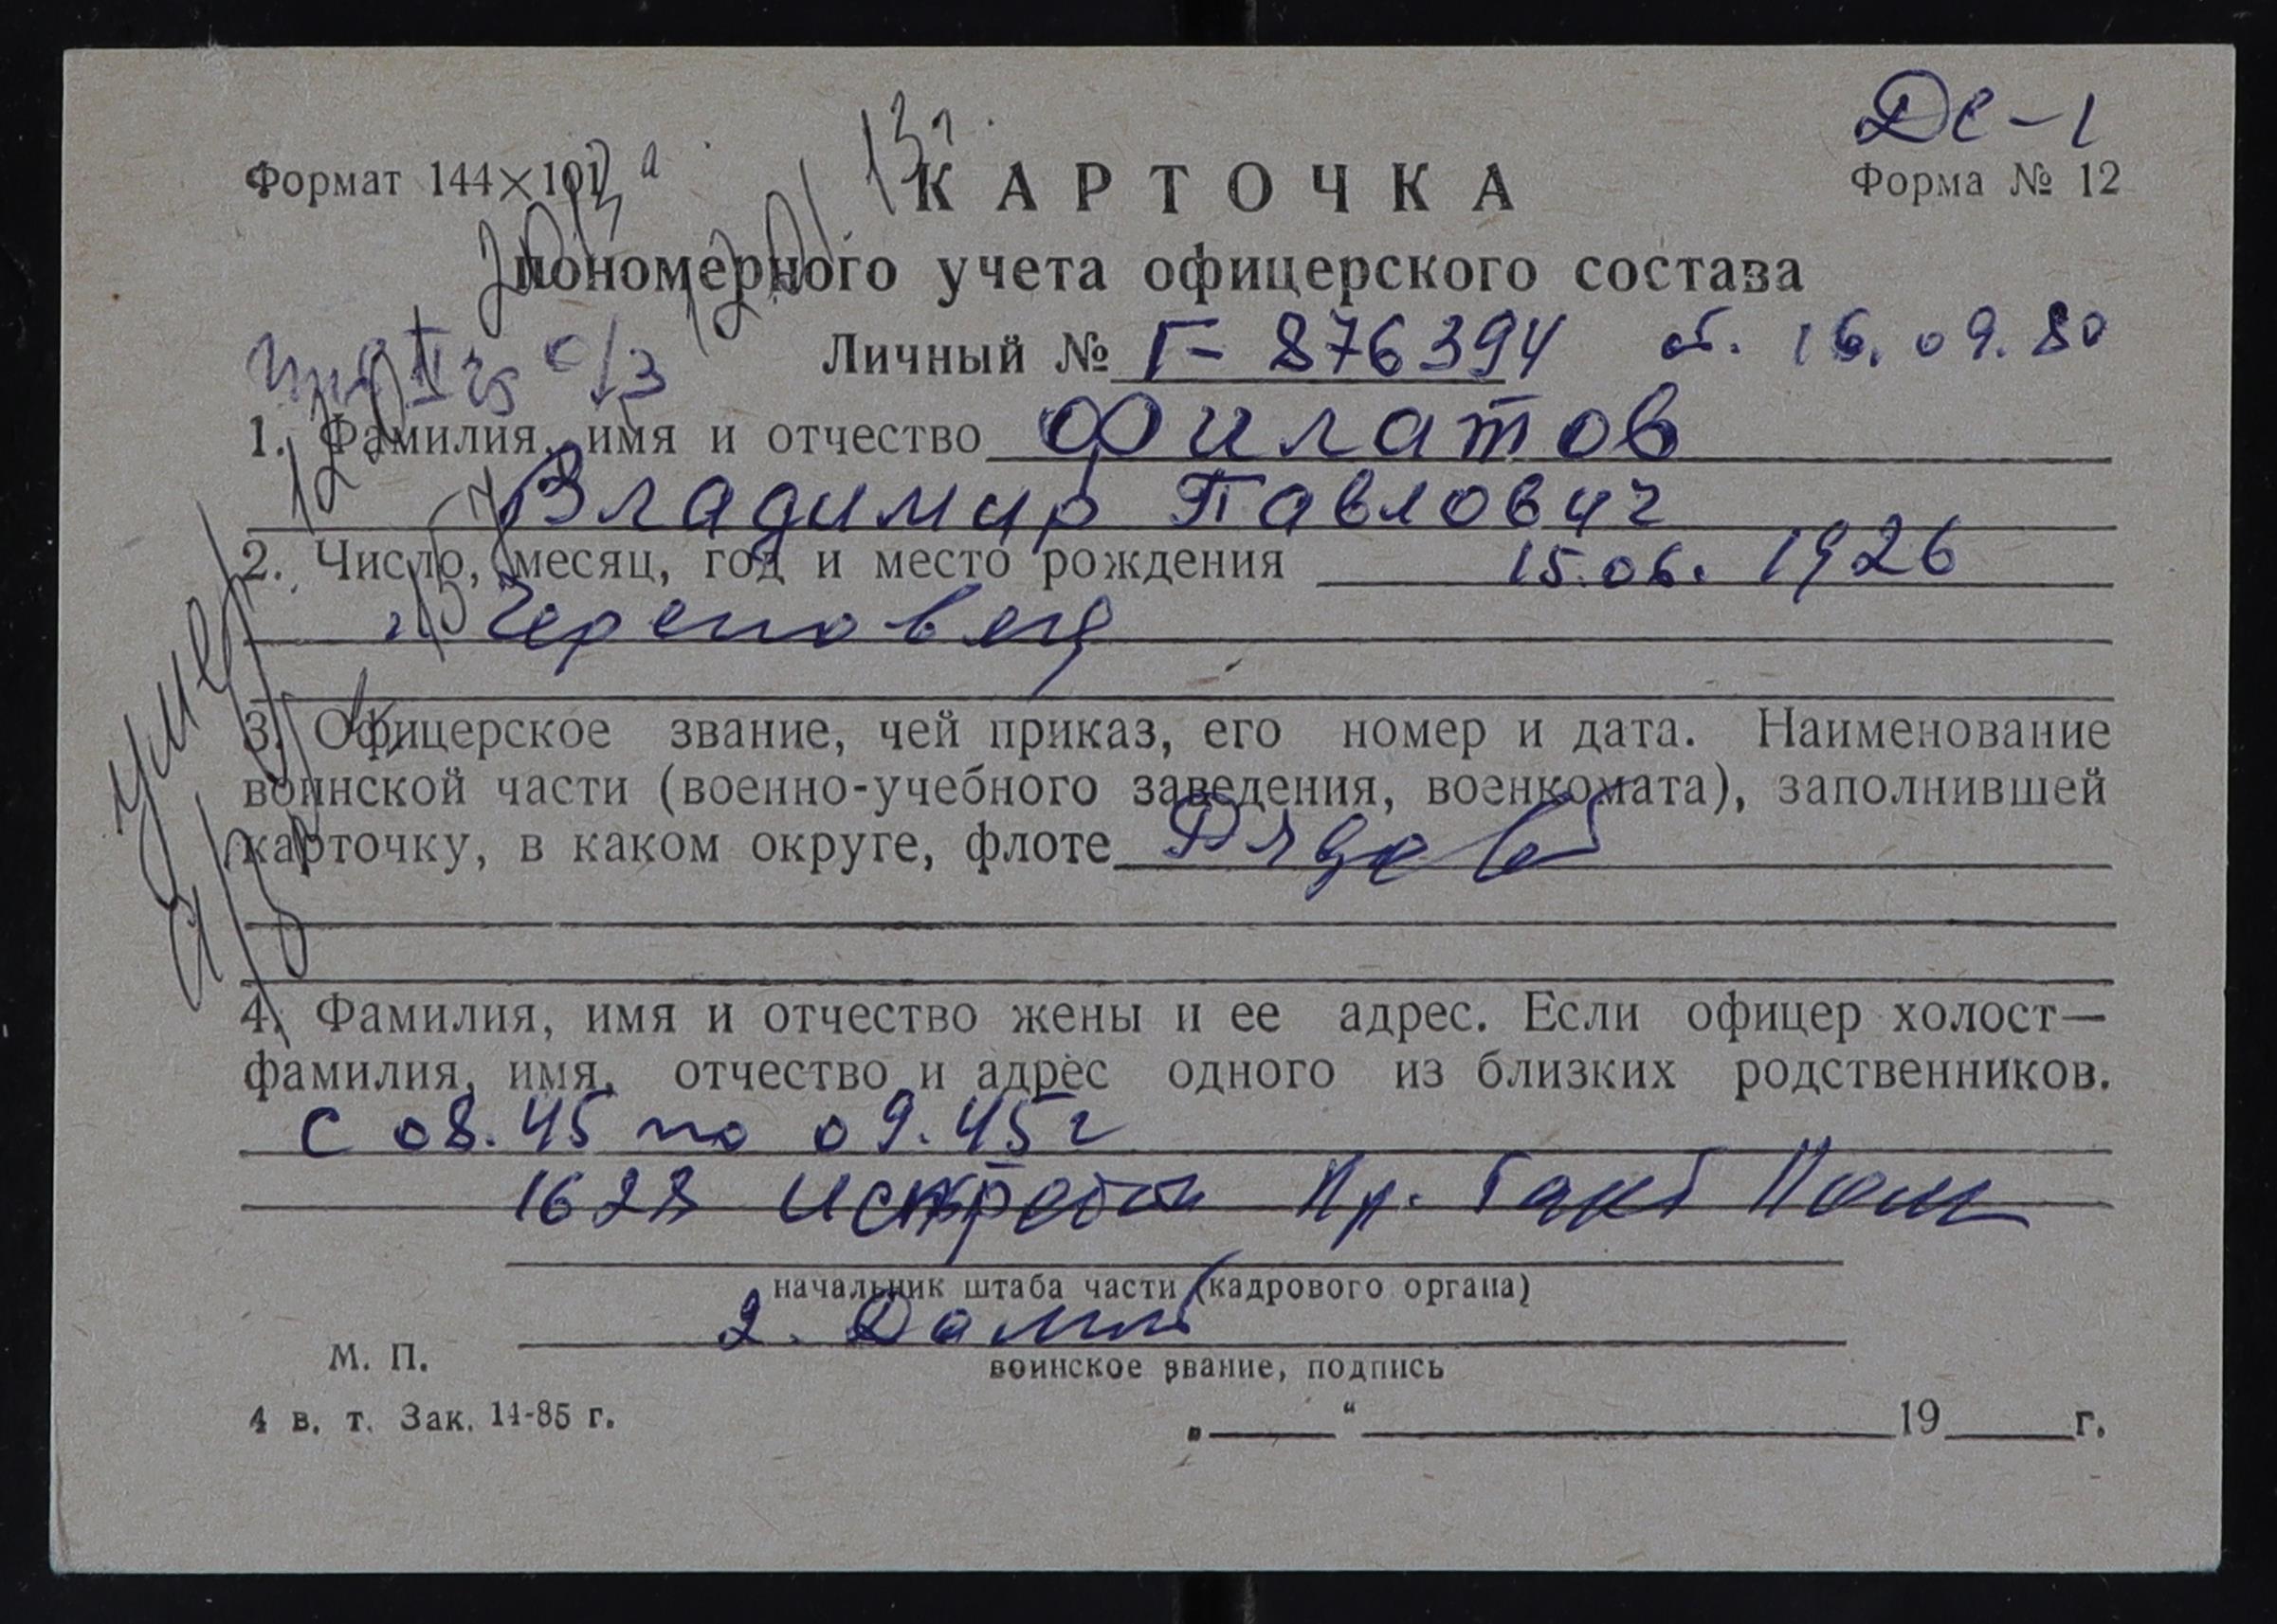 Дс-1
Формат 144×101
КАРТОЧКА
Форма № 12
пономерного учета офицерского состава
Личный № Г-876394 от. 16.09.80
1. Фамилия, имя и отчество Филатов
Владимир Павлович
2. Число, месяц, год и место рождения 15.06.1926
г. Череповец
3. Офицерское звание, чей приказ, его номер и дата. Наименование
воинской части (военно-учебного заведения, военкомата), заполнившей
карточку, в каком округе, флоте
умер
4. Фамилия, имя и отчество жены и ее адрес. Если офицер холост—
фамилия, имя, отчество и адрес одного из близких родственников.
с 08.45 по 09.45г
1628
начальник штаба части (кадрового органа)
2.
М. П.
воинское звание, подпись
4 в. т. Зак. 14-85 г.
„ “ 19 г.